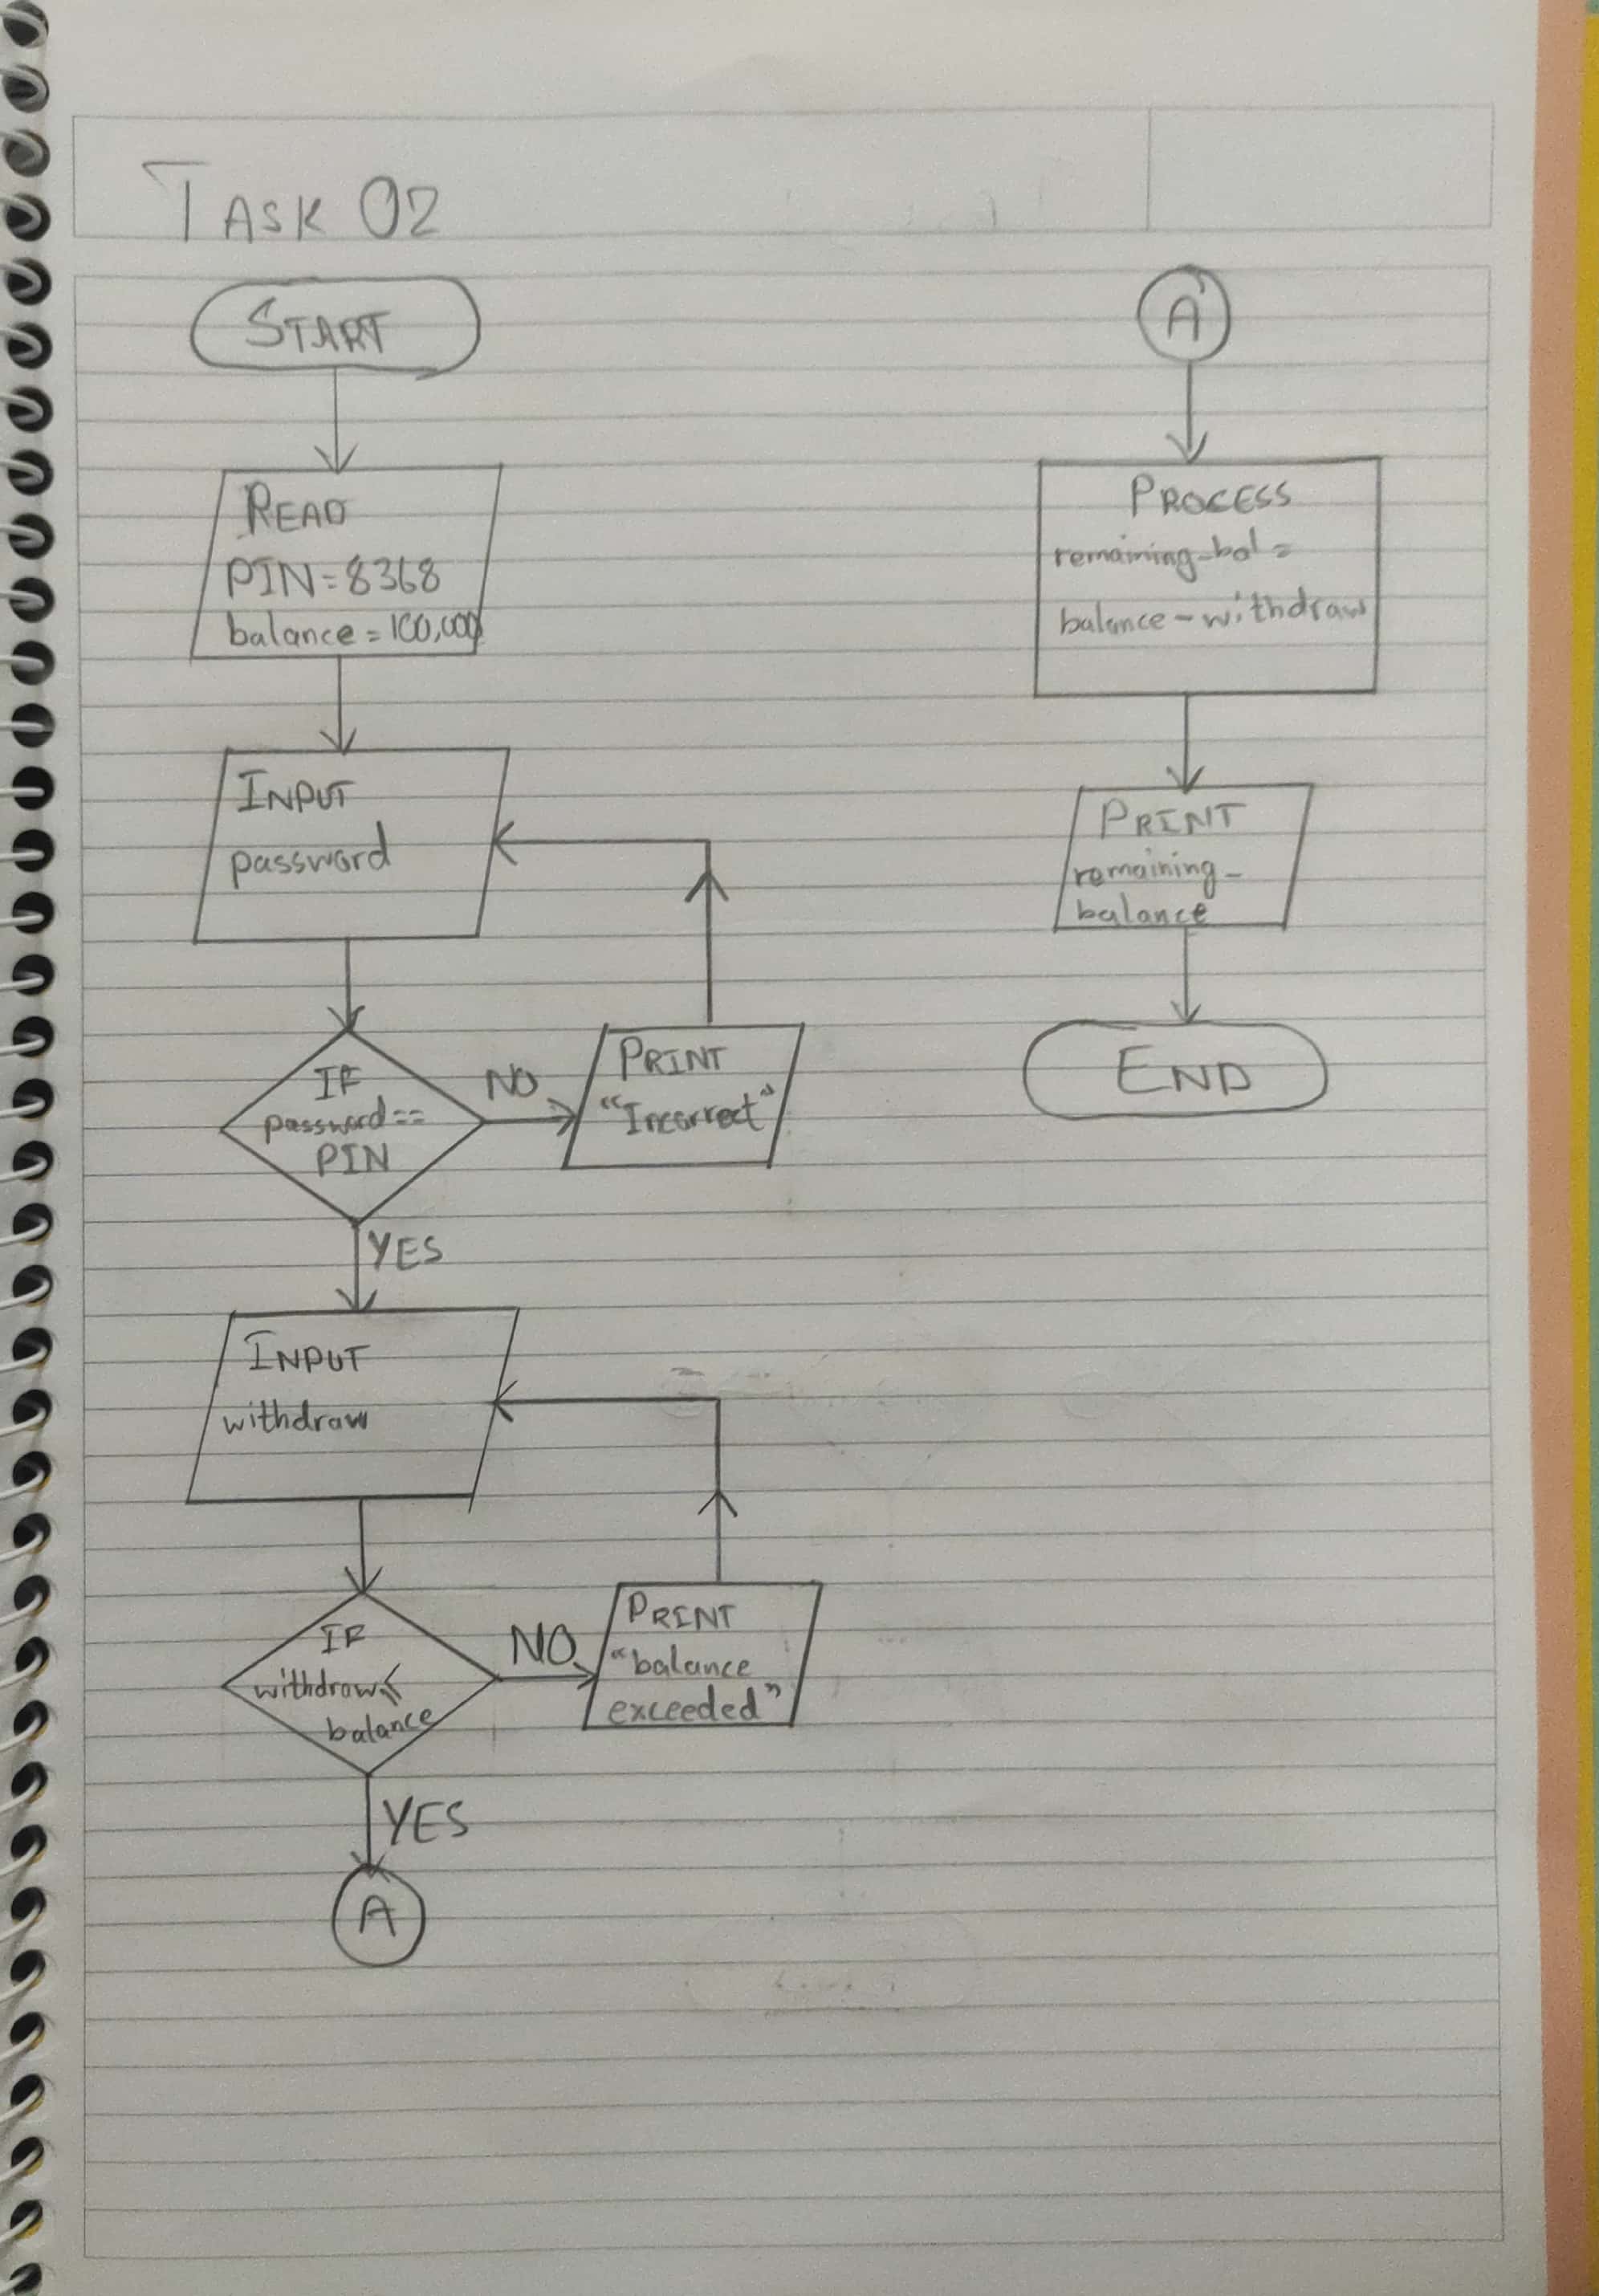 TASK 02
START
READ
PIN=8368
balance=100,000
INPUT
password
IF
password==
PIN
NO
PRINT
"Incorrect"
YES
INPUT
withdraw
IF
withdraw≤
balance
NO
PRINT
"balance
exceeded"
YES
A
A
PROCESS
remaining_bal=
balance-withdraw
PRINT
remaining_
balance
END